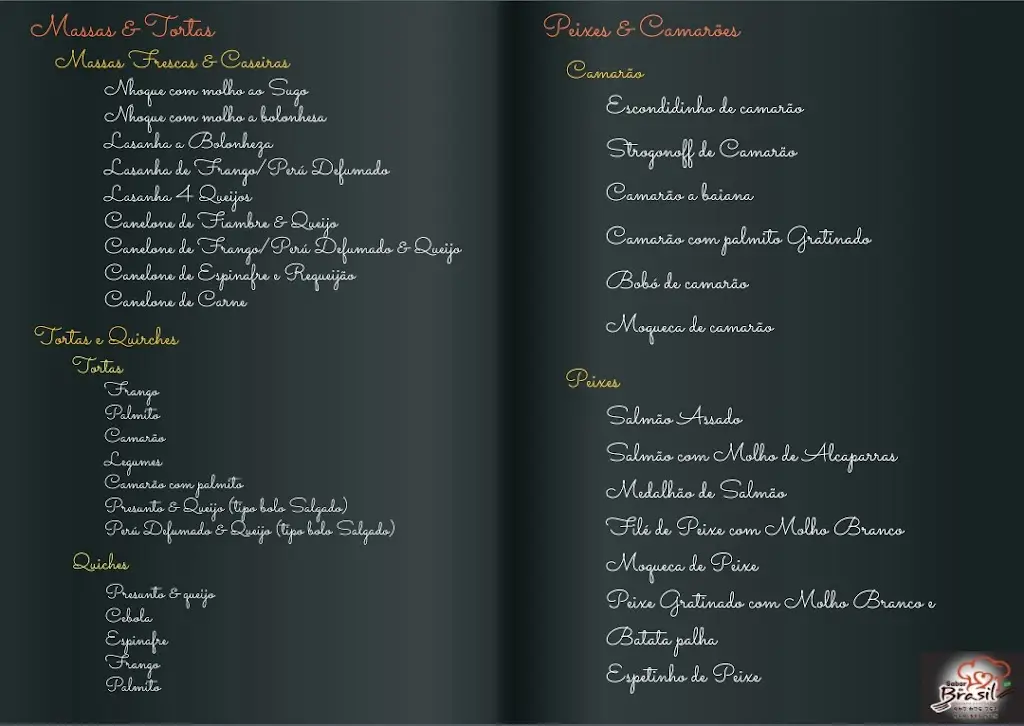 Massas & Tortas
Massas Frescas & Caseiras
Nhoque com molho ao Sugo
Nhoque com molho a bolonhesa
Lasanha a Bolonheza
Lasanha de Frango/Perú Defumado
Lasanha 4 Queijos
Canelone de Fiambre & Queijo
Canelone de Frango/Perú Defumado & Queijo
Canelone de Espinafre e Requeijão
Canelone de Carne
Tortas e Quirches
Tortas
Frango
Palmito
Camarão
Legumes
Camarão com palmito
Presunto & Queijo (tipo bolo Salgado)
Perú Defumado & Queijo (tipo bolo Salgado)
Quiches
Presunto & queijo
Cebola
Espinafre
Frango
Palmito
Peixes & Camarões
Camarão
Escondidinho de camarão
Strogonoff de Camarão
Camarão a baiana
Camarão com palmito Gratinado
Bobó de camarão
Moqueca de camarão
Peixes
Salmão Assado
Salmão com Molho de Alcaparras
Medalhão de Salmão
Filé de Peixe com Molho Branco
Moqueca de Peixe
Peixe Gratinado com Molho Branco e
Batata palha
Espetinho de Peixe
Sabor
Brasil